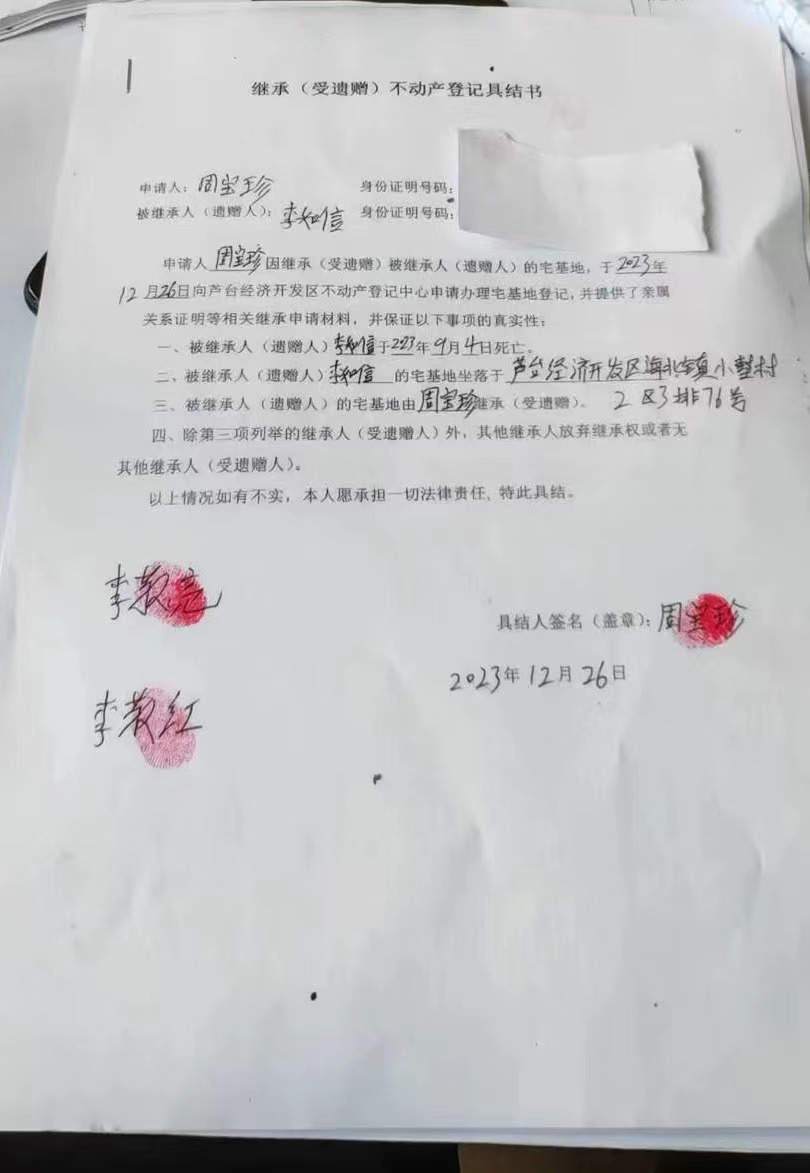 继承（受遗赠）不动产登记具结书
申请人：周宝珍 身份证明号码：
被继承人（遗赠人）：李知信 身份证明号码：
申请人周宝珍因继承（受遗赠）被继承人（遗赠人）的宅基地，于2023年
12月26日向芦台经济开发区不动产登记中心申请办理宅基地登记，并提供了亲属
关系证明等相关继承申请材料，并保证以下事项的真实性：
一、被继承人（遗赠人）李知信于2023年9月4日死亡。
二、被继承人（遗赠人）李知信的宅基地坐落于芦台经济开发区海北镇小村
三、被继承人（遗赠人）的宅基地由周宝珍继承（受遗赠）。 2区3排76号
四、除第三项列举的继承人（受遗赠人）外，其他继承人放弃继承权或者无
其他继承人（受遗赠人）。
以上情况如有不实，本人愿承担一切法律责任、特此具结。
李敬亮
具结人签名（盖章）：周宝珍
2023年12月26日
李敬红